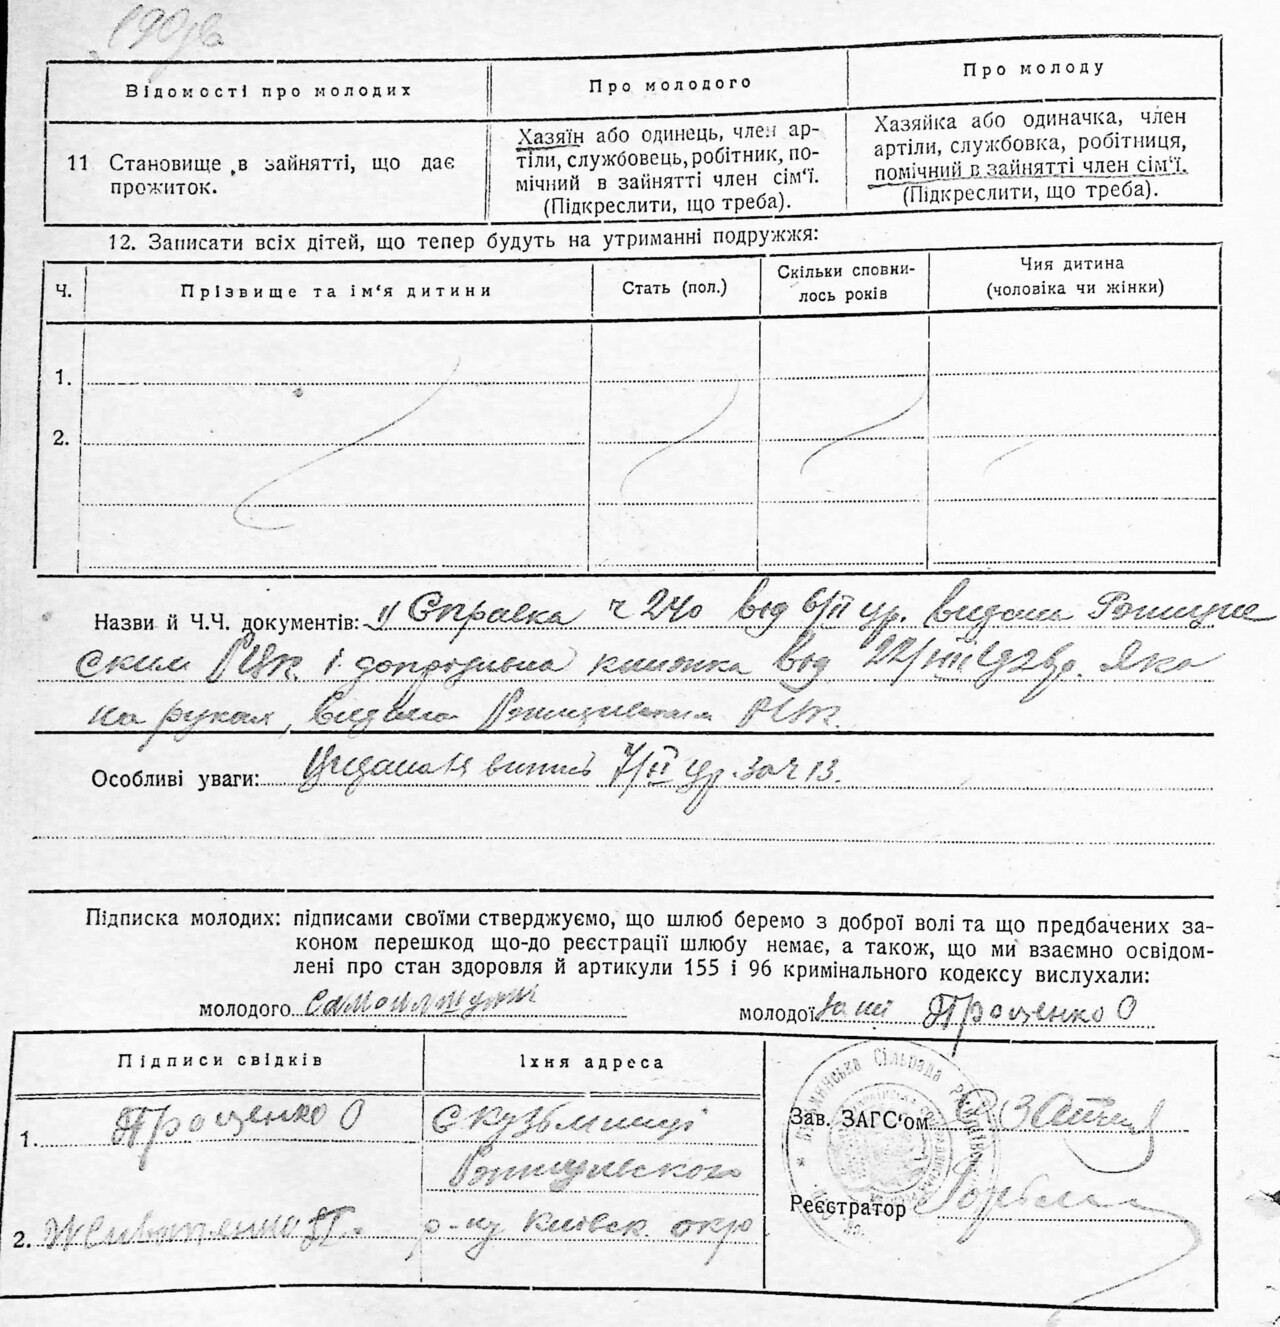 Відомості про молодих
Про молодого
Про молоду
11 Становище в зайнятті, що дає
прожиток.
Хазяїн або одинець, член ар-
тіли, службовець, робітник, по-
мічний в зайнятті член сім'ї.
(Підкреслити, що треба).
Хазяйка або одиначка, член
артіли, службовка, робітниця,
помічний в зайнятті член сім'ї.
(Підкреслити, що треба).
12. Записати всіх дітей, що тепер будуть на утриманні подружжя:
Ч.
Прізвище та ім'я дитини
Стать (пол.)
Скільки сповни-
лось років
Чия дитина
(чоловіка чи жінки)
1.
2.
Назви й Ч.Ч. документів: 1/ Справка ч 240 від 6/II ц.р. видана
ским РВК і книжка від 22/ яка
на руках, видана РВК.
Особливі уваги: випис 7/II ц.р. за ч 13.
Підписка молодих: підписами своїми стверджуємо, що шлюб беремо з доброї волі та що предбачених за-
коном перешкод що-до реєстрації шлюбу немає, а також, що ми взаємно освідом-
лені про стан здоровля й артикули 155 і 96 кримінального кодексу вислухали:
молодого
молодої за неї Проценко О
Підписи свідків
Їхня адреса
1. Проценко О
с Кузьминці
р-ну Київск. окр
2.
Зав. ЗАГС'ом
Реєстратор